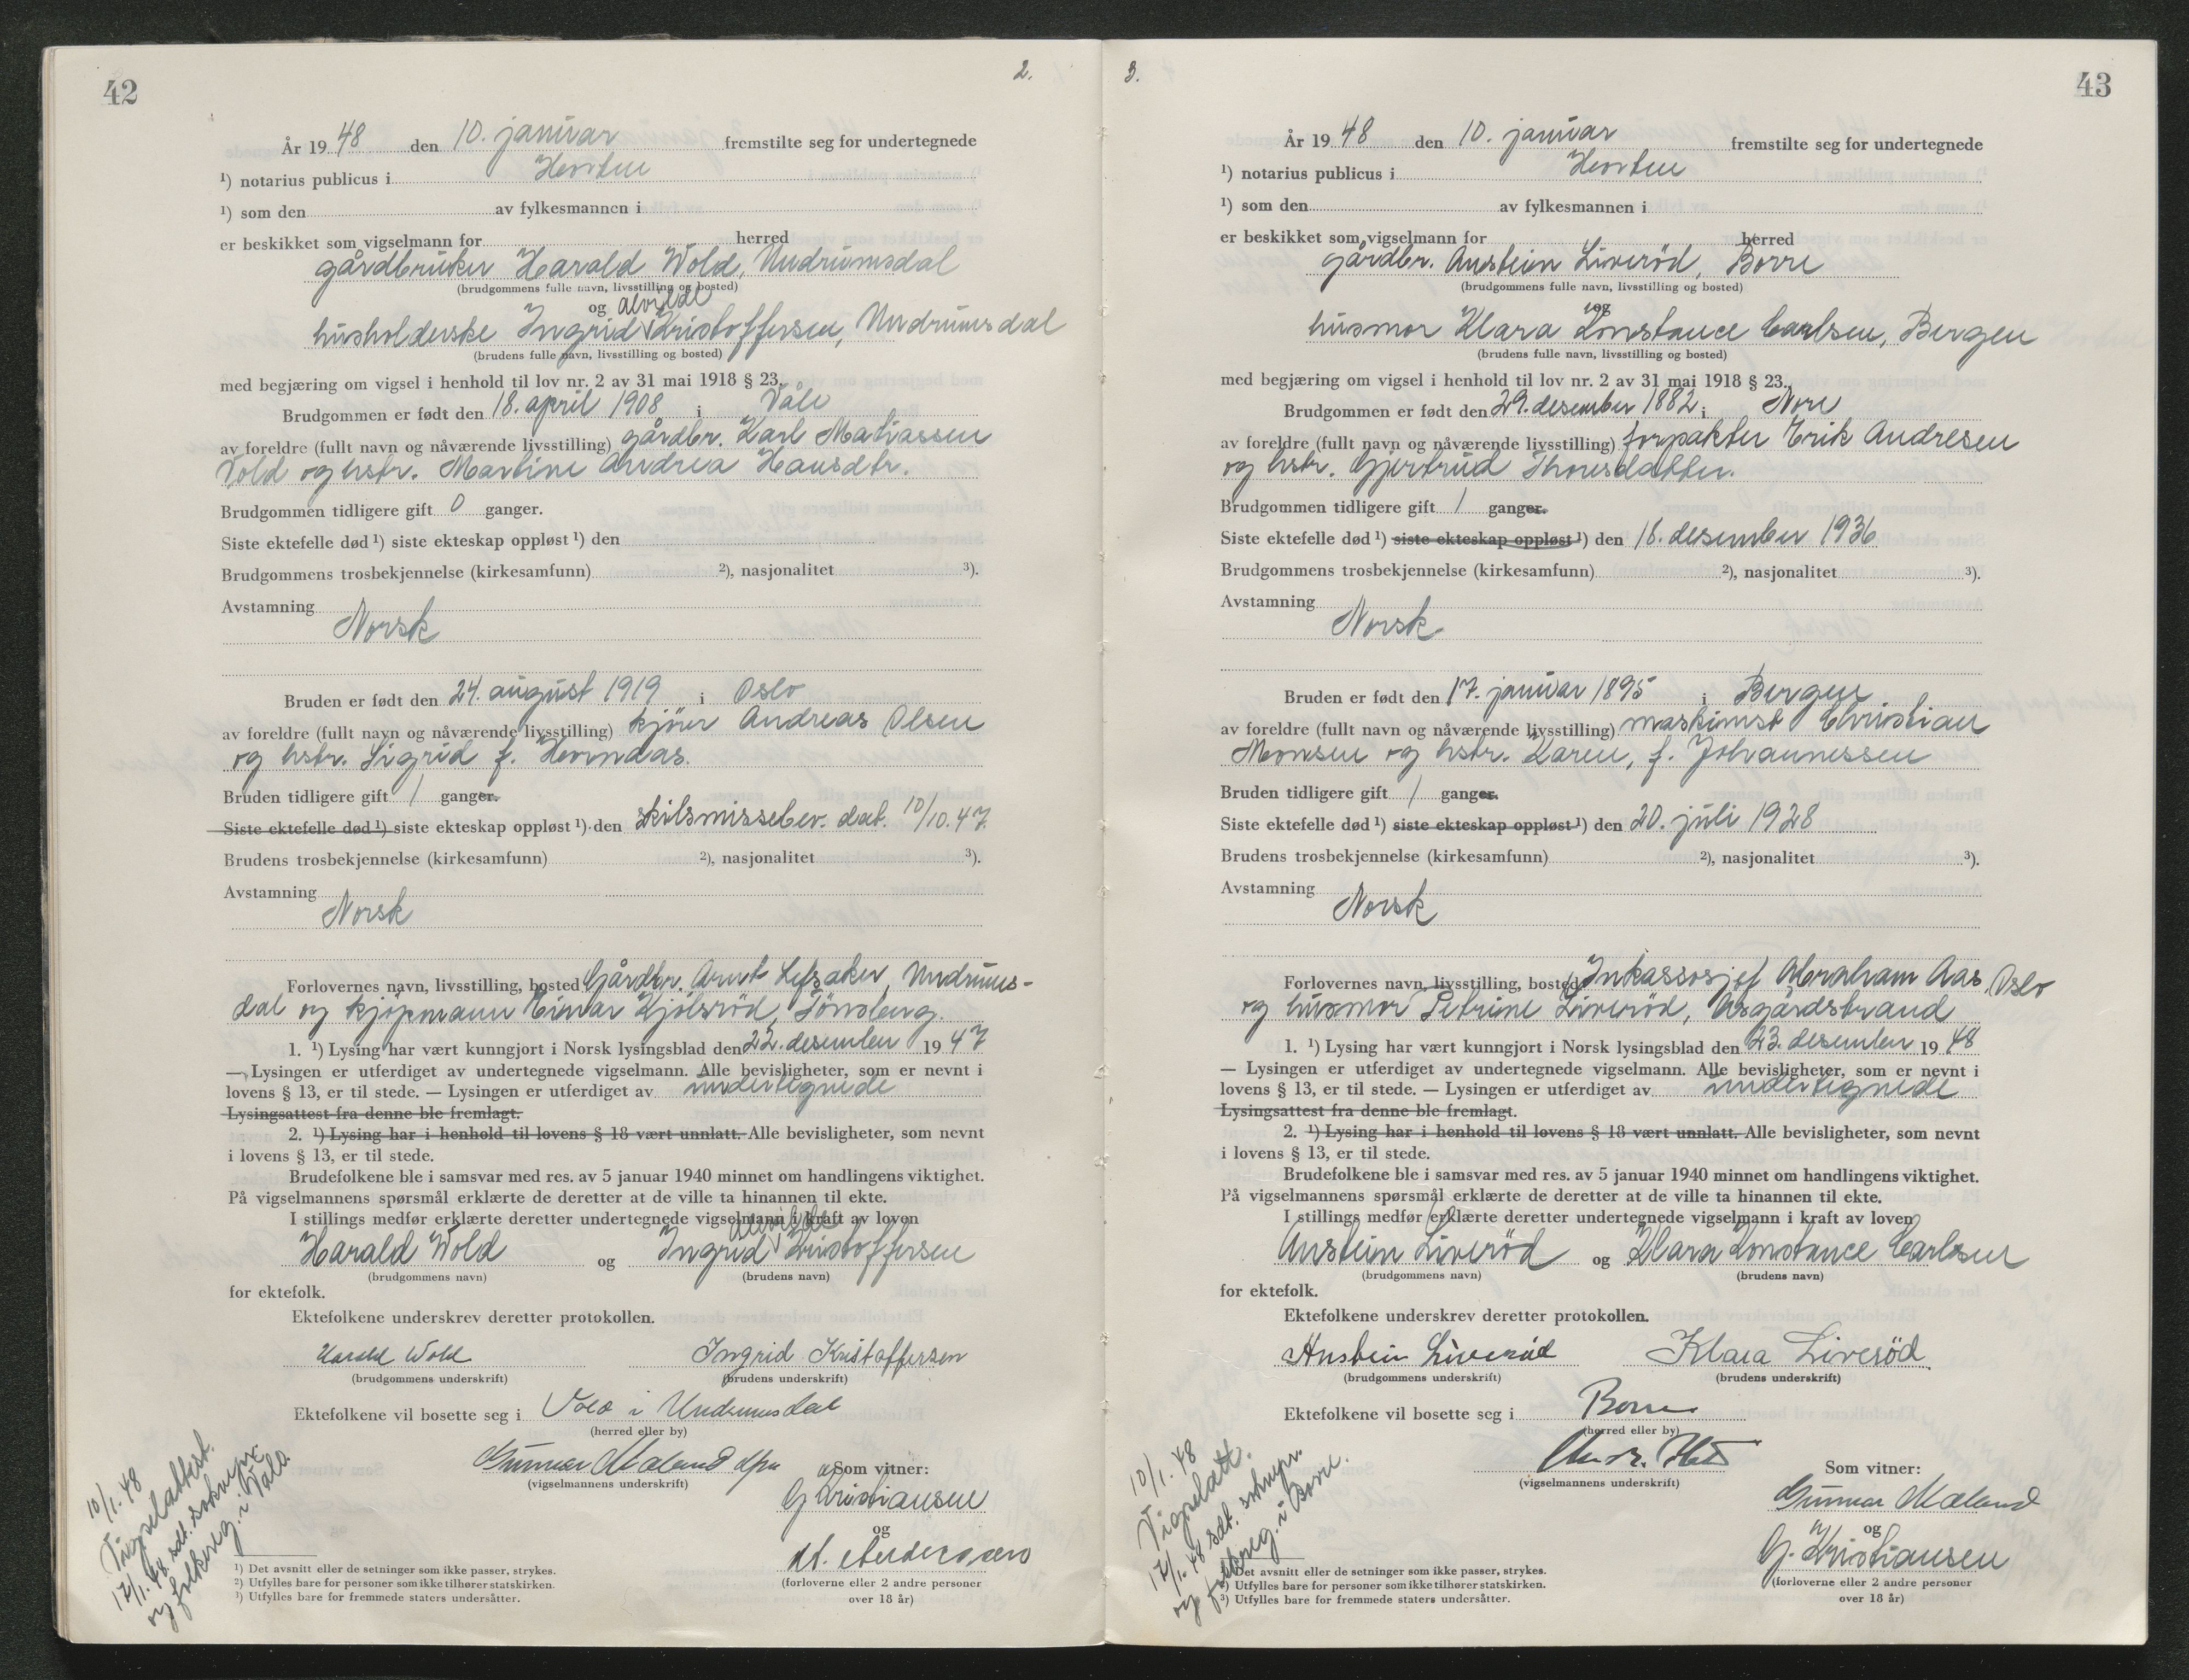 42
2.
År 19 48 den 10. januar fremstilte seg for undertegnede
¹) notarius publicus i Horten
¹) som den av fylkesmannen i
er beskikket som vigselmann for herred
gårdbruker Harald Wold, Undrumsdal
(brudgommens fulle navn, livsstilling og bosted)
og Alvilde
husholderske Ingrid Kristoffersen, Undrumsdal
(brudens fulle navn, livsstilling og bosted)
med begjæring om vigsel i henhold til lov nr. 2 av 31 mai 1918 § 23.
Brudgommen er født den 18. april 1908 i Våle
av foreldre (fullt navn og nåværende livsstilling) gårdbr. Karl Matiassen
Vold og hstr. Martine Andrea Hansdtr.
Brudgommen tidligere gift 0 ganger.
Siste ektefelle død ¹) siste ekteskap oppløst ¹) den
Brudgommens trosbekjennelse (kirkesamfunn) ²), nasjonalitet ³).
Avstamning
Norsk
Bruden er født den 24. august 1919 i Oslo
av foreldre (fullt navn og nåværende livsstilling) kjører Andreas Olsen
og hstr. Sigrid f. Horndas.
Bruden tidligere gift 1 ganger.
Siste ektefelle død ¹) siste ekteskap oppløst ¹) den skilsmissebev. dat. 10/10.47.
Brudens trosbekjennelse (kirkesamfunn) ²), nasjonalitet ³).
Avstamning
Norsk
Forlovernes navn, livsstilling, bosted Gårdbr. Arnt Lefsaker, Undrums-
dal og kjøpmann Einar Kjølsrød, Tønsberg.
1. ¹) Lysing har vært kunngjort i Norsk lysingsblad den 22. desember 19 47
— Lysingen er utferdiget av undertegnede vigselmann. Alle bevisligheter, som er nevnt i
lovens § 13, er til stede. — Lysingen er utferdiget av undertegnede
Lysingsattest fra denne ble fremlagt.
2. ¹) Lysing har i henhold til lovens § 18 vært unnlatt. Alle bevisligheter, som nevnt
i lovens § 13, er til stede.
Brudefolkene ble i samsvar med res. av 5 januar 1940 minnet om handlingens viktighet.
På vigselmannens spørsmål erklærte de deretter at de ville ta hinannen til ekte.
I stillings medfør erklærte deretter undertegnede vigselmann i kraft av loven
Alvilde
Harald Wold og Ingrid Kristoffersen
(brudgommens navn) (brudens navn)
for ektefolk.
Ektefolkene underskrev deretter protokollen.
Harald Wold Ingrid Kristoffersen
(brudgommens underskrift) (brudens underskrift)
Ektefolkene vil bosette seg i Vold i Undrumsdal
(herred eller by)
Gunnar Mæland
(vigselmannens underskrift)
Som vitner:
G Kristiansen
og
(forloverne eller 2 andre personer
over 18 år)
10/1. 48
Vigselattest.
17/1. 48. sdt. soknepr.
og folkereg. i Våle
¹) Det avsnitt eller de setninger som ikke passer, strykes.
²) Utfylles bare for personer som ikke tilhører statskirken.
³) Utfylles bare for fremmede staters undersåtter.
3.
43
År 19 48 den 10. januar fremstilte seg for undertegnede
¹) notarius publicus i Horten
¹) som den av fylkesmannen i
er beskikket som vigselmann for herred
gårdbr. Anstein Liverød, Borre
(brudgommens fulle navn, livsstilling og bosted)
og
husmor Klara Konstance Carlsen, Bergen
(brudens fulle navn, livsstilling og bosted)
med begjæring om vigsel i henhold til lov nr. 2 av 31 mai 1918 § 23.
Brudgommen er født den 29. desember 1882 i Nore
av foreldre (fullt navn og nåværende livsstilling) forpakter Erik Andresen
og hstr. Gjertrud Thoresdatter.
Brudgommen tidligere gift 1 ganger.
Siste ektefelle død ¹) siste ekteskap oppløst ¹) den 18. desember 1936
Brudgommens trosbekjennelse (kirkesamfunn) ²), nasjonalitet ³).
Avstamning
Norsk
Bruden er født den 17. januar 1895 i Bergen
av foreldre (fullt navn og nåværende livsstilling) maskinist Christian
Monsen og hstr. Karen, f. Johannessen
Bruden tidligere gift 1 ganger.
Siste ektefelle død ¹) siste ekteskap oppløst ¹) den 20. juli 1928
Brudens trosbekjennelse (kirkesamfunn) ²), nasjonalitet ³).
Avstamning
Norsk
Forlovernes navn, livsstilling, bosted Inkassosjef Abraham Aas, Oslo
og husmor Petrine Liverød, Åsgårdstrand
1. ¹) Lysing har vært kunngjort i Norsk lysingsblad den 23. desember 19 48
— Lysingen er utferdiget av undertegnede vigselmann. Alle bevisligheter, som er nevnt i
lovens § 13, er til stede. — Lysingen er utferdiget av undertegnede
Lysingsattest fra denne ble fremlagt.
2. ¹) Lysing har i henhold til lovens § 18 vært unnlatt. Alle bevisligheter, som nevnt
i lovens § 13, er til stede.
Brudefolkene ble i samsvar med res. av 5 januar 1940 minnet om handlingens viktighet.
På vigselmannens spørsmål erklærte de deretter at de ville ta hinannen til ekte.
I stillings medfør erklærte deretter undertegnede vigselmann i kraft av loven
Anstein Liverød og Klara Konstance Carlsen
(brudgommens navn) (brudens navn)
for ektefolk.
Ektefolkene underskrev deretter protokollen.
Anstein Liverød Klara Liverød
(brudgommens underskrift) (brudens underskrift)
Ektefolkene vil bosette seg i Borre
(herred eller by)
(vigselmannens underskrift)
Som vitner:
Gunnar Mæland
og
G. Kristiansen
(forloverne eller 2 andre personer
over 18 år)
10/1. 48
Vigselatt.
17/1. 48 sdt. soknepr.
og folkereg. i Borre.
¹) Det avsnitt eller de setninger som ikke passer, strykes.
²) Utfylles bare for personer som ikke tilhører statskirken.
³) Utfylles bare for fremmede staters undersåtter.